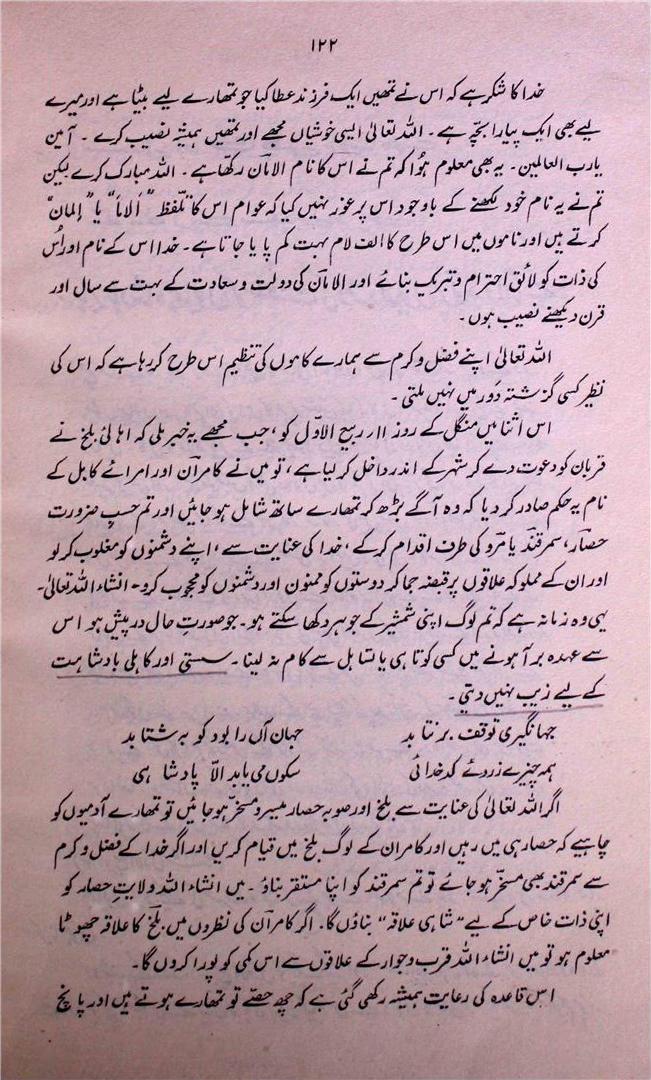 ۱۲۲
خدا کا شکر ہے کہ اس نے تمھیں ایک فرزند عطا کیا جو تمھارے لیے بیٹا ہے اور میرے
لیے بھی ایک پیارا بچہ ہے۔ اللہ تعالیٰ ایسی خوشیاں مجھے اور تمھیں ہمیشہ نصیب کرے۔ آمین
یا رب العالمین۔ یہ بھی معلوم ہُوا کہ تم نے اس کا نام الامان رکھا ہے۔ اللہ مبارک کرے لیکن
تم نے یہ نام خود لکھنے کے باوجود اس پر غور نہیں کیا کہ عوام اس کا تلفظ "اَلاما" یا "اِلمان"
کرتے ہیں اور ناموں میں اس طرح کا الف لام بہت کم پایا جاتا ہے۔ خدا اس کے نام اور اُس
کی ذات کو لائق احترام و تبریک بنائے اور الامان کی دولت و سعادت کے بہت سے سال اور
قرن دیکھنے نصیب ہوں۔
اللہ تعالیٰ اپنے فضل و کرم سے ہمارے کاموں کی تنظیم اس طرح کر رہا ہے کہ اس کی
نظیر کسی گزشتہ دَور میں نہیں ملتی۔
اس اثنا میں منگل کے روز ۱۱ ربیع الاوّل کو، جب مجھے یہ خبر ملی کہ اہالیٔ بلخ نے
قربان کو دعوت دے کر شہر کے اندر داخل کر لیا ہے، تو میں نے کامران اور امرائے کابل کے
نام یہ حکم صادر کر دیا کہ وہ آگے بڑھ کر تمھارے ساتھ شامل ہو جائیں اور تم حسبِ ضرورت
حصار، سمرقند یا مرو کی طرف اقدام کر کے، خدا کی عنایت سے، اپنے دشمنوں کو مغلوب کر لو
اور ان کے مملوکہ علاقوں پر قبضہ جما کر دوستوں کو ممنون اور دشمنوں کو محجوب کرو۔ انشاء اللہ تعالیٰ۔
یہی وہ زمانہ ہے کہ تم لوگ اپنی شمشیر کے جوہر دکھا سکتے ہو۔ جو صورتِ حال درپیش ہو اس
سے عہدہ برآ ہونے میں کسی کوتاہی یا تساہل سے کام نہ لینا۔ سستی اور کاہلی بادشاہت
کے لیے زیب نہیں دیتی۔
جہانگیری توقف بر نتابد جہان آں را بود کو بہ شتابد
ہمہ چیزے ز روئے کدخدائی سکوں می یابد الّا پادشاہی
اگر اللہ تعالیٰ کی عنایت سے بلخ اور صوبہ حصار میسر و مسخّر ہو جائیں تو تمھارے آدمیوں کو
چاہیے کہ حصار ہی میں رہیں اور کامران کے لوگ بلخ میں قیام کریں اور اگر خدا کے فضل و کرم
سے سمرقند بھی مسخّر ہو جائے تو تم سمرقند کو اپنا مستقر بناؤ۔ میں انشاء اللہ ولایتِ حصار کو
اپنی ذات خاص کے لیے "شاہی علاقہ" بناؤں گا۔ اگر کامران کی نظروں میں بلخ کا علاقہ چھوٹا
معلوم ہو تو میں انشاء اللہ قرب و جوار کے علاقوں سے اس کمی کو پورا کروں گا۔
اِس قاعدہ کی رعایت ہمیشہ رکھی گئی ہے کہ چھ حصّے تو تمھارے ہوتے ہیں اور پانچ